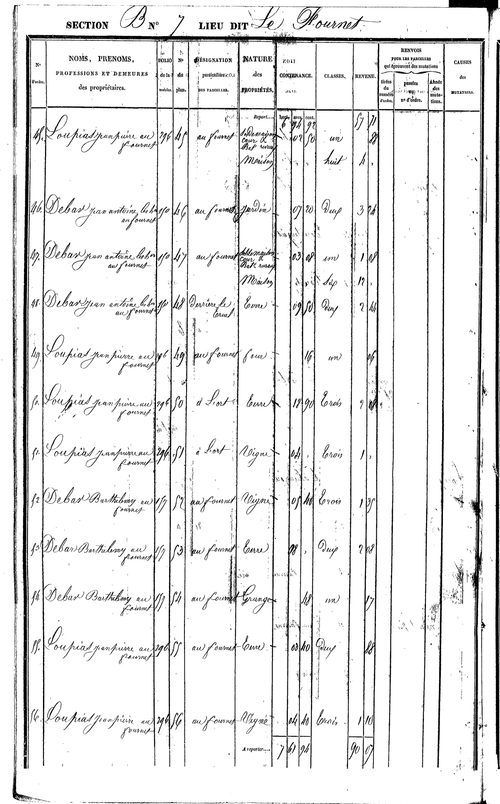 SECTION B N° 7 LIEU DIT Le Fournet
N° d'ordre. NOMS, PRENOMS, PROFESSIONS ET DEMEURES des propriétaires. FOLIO N° du plan. DÉSIGNATION DES PARCELLES. NATURE des PROPRIÉTÉS. CONTENANCE. CLASSES. REVENU. RENVOIS POUR LES PARCELLES qui éprouvent des mutations CAUSES des MUTATIONS.
Report... 6 94 92 57 71
45. Loupias jean pierre au fournet 296 45 au fournet Sol de maison cour & 02 50 un 88
Maison huit 4
46. Debar jean antoine au fournet 150 46 au fournet jardin 07 20 Deux 3 24
47. Debar jean antoine au fournet 150 47 au fournet Sol de maison cour & 03 08 un 1 08
Maison six 12
48. Debar jean antoine au fournet 150 48 Derrière le Terre 09 50 Deux 2 46
49. Loupias jean pierre au fournet 296 49 au fournet four 16 un 06
50. Loupias jean pierre au fournet 296 50 à Lort Terre 18 90 Trois 2
51. Loupias jean pierre au fournet 296 51 à Lort Vigne 04 Trois 1
52. Debar Barthélemy au fournet 157 52 au fournet Vigne 05 40 Trois 1 35
53. Debar Barthélemy au fournet 157 53 au fournet Terre 08 Deux 2 08
54. Debar Barthélemy au fournet 157 54 au fournet Grange 48 un 17
55. Loupias jean pierre au fournet 296 55 au fournet Terre 03 40 Deux 88
56. Loupias jean pierre au fournet 296 56 au fournet Vigne 04 40 Trois 1 10
A reporter... 7 61 94 90 07